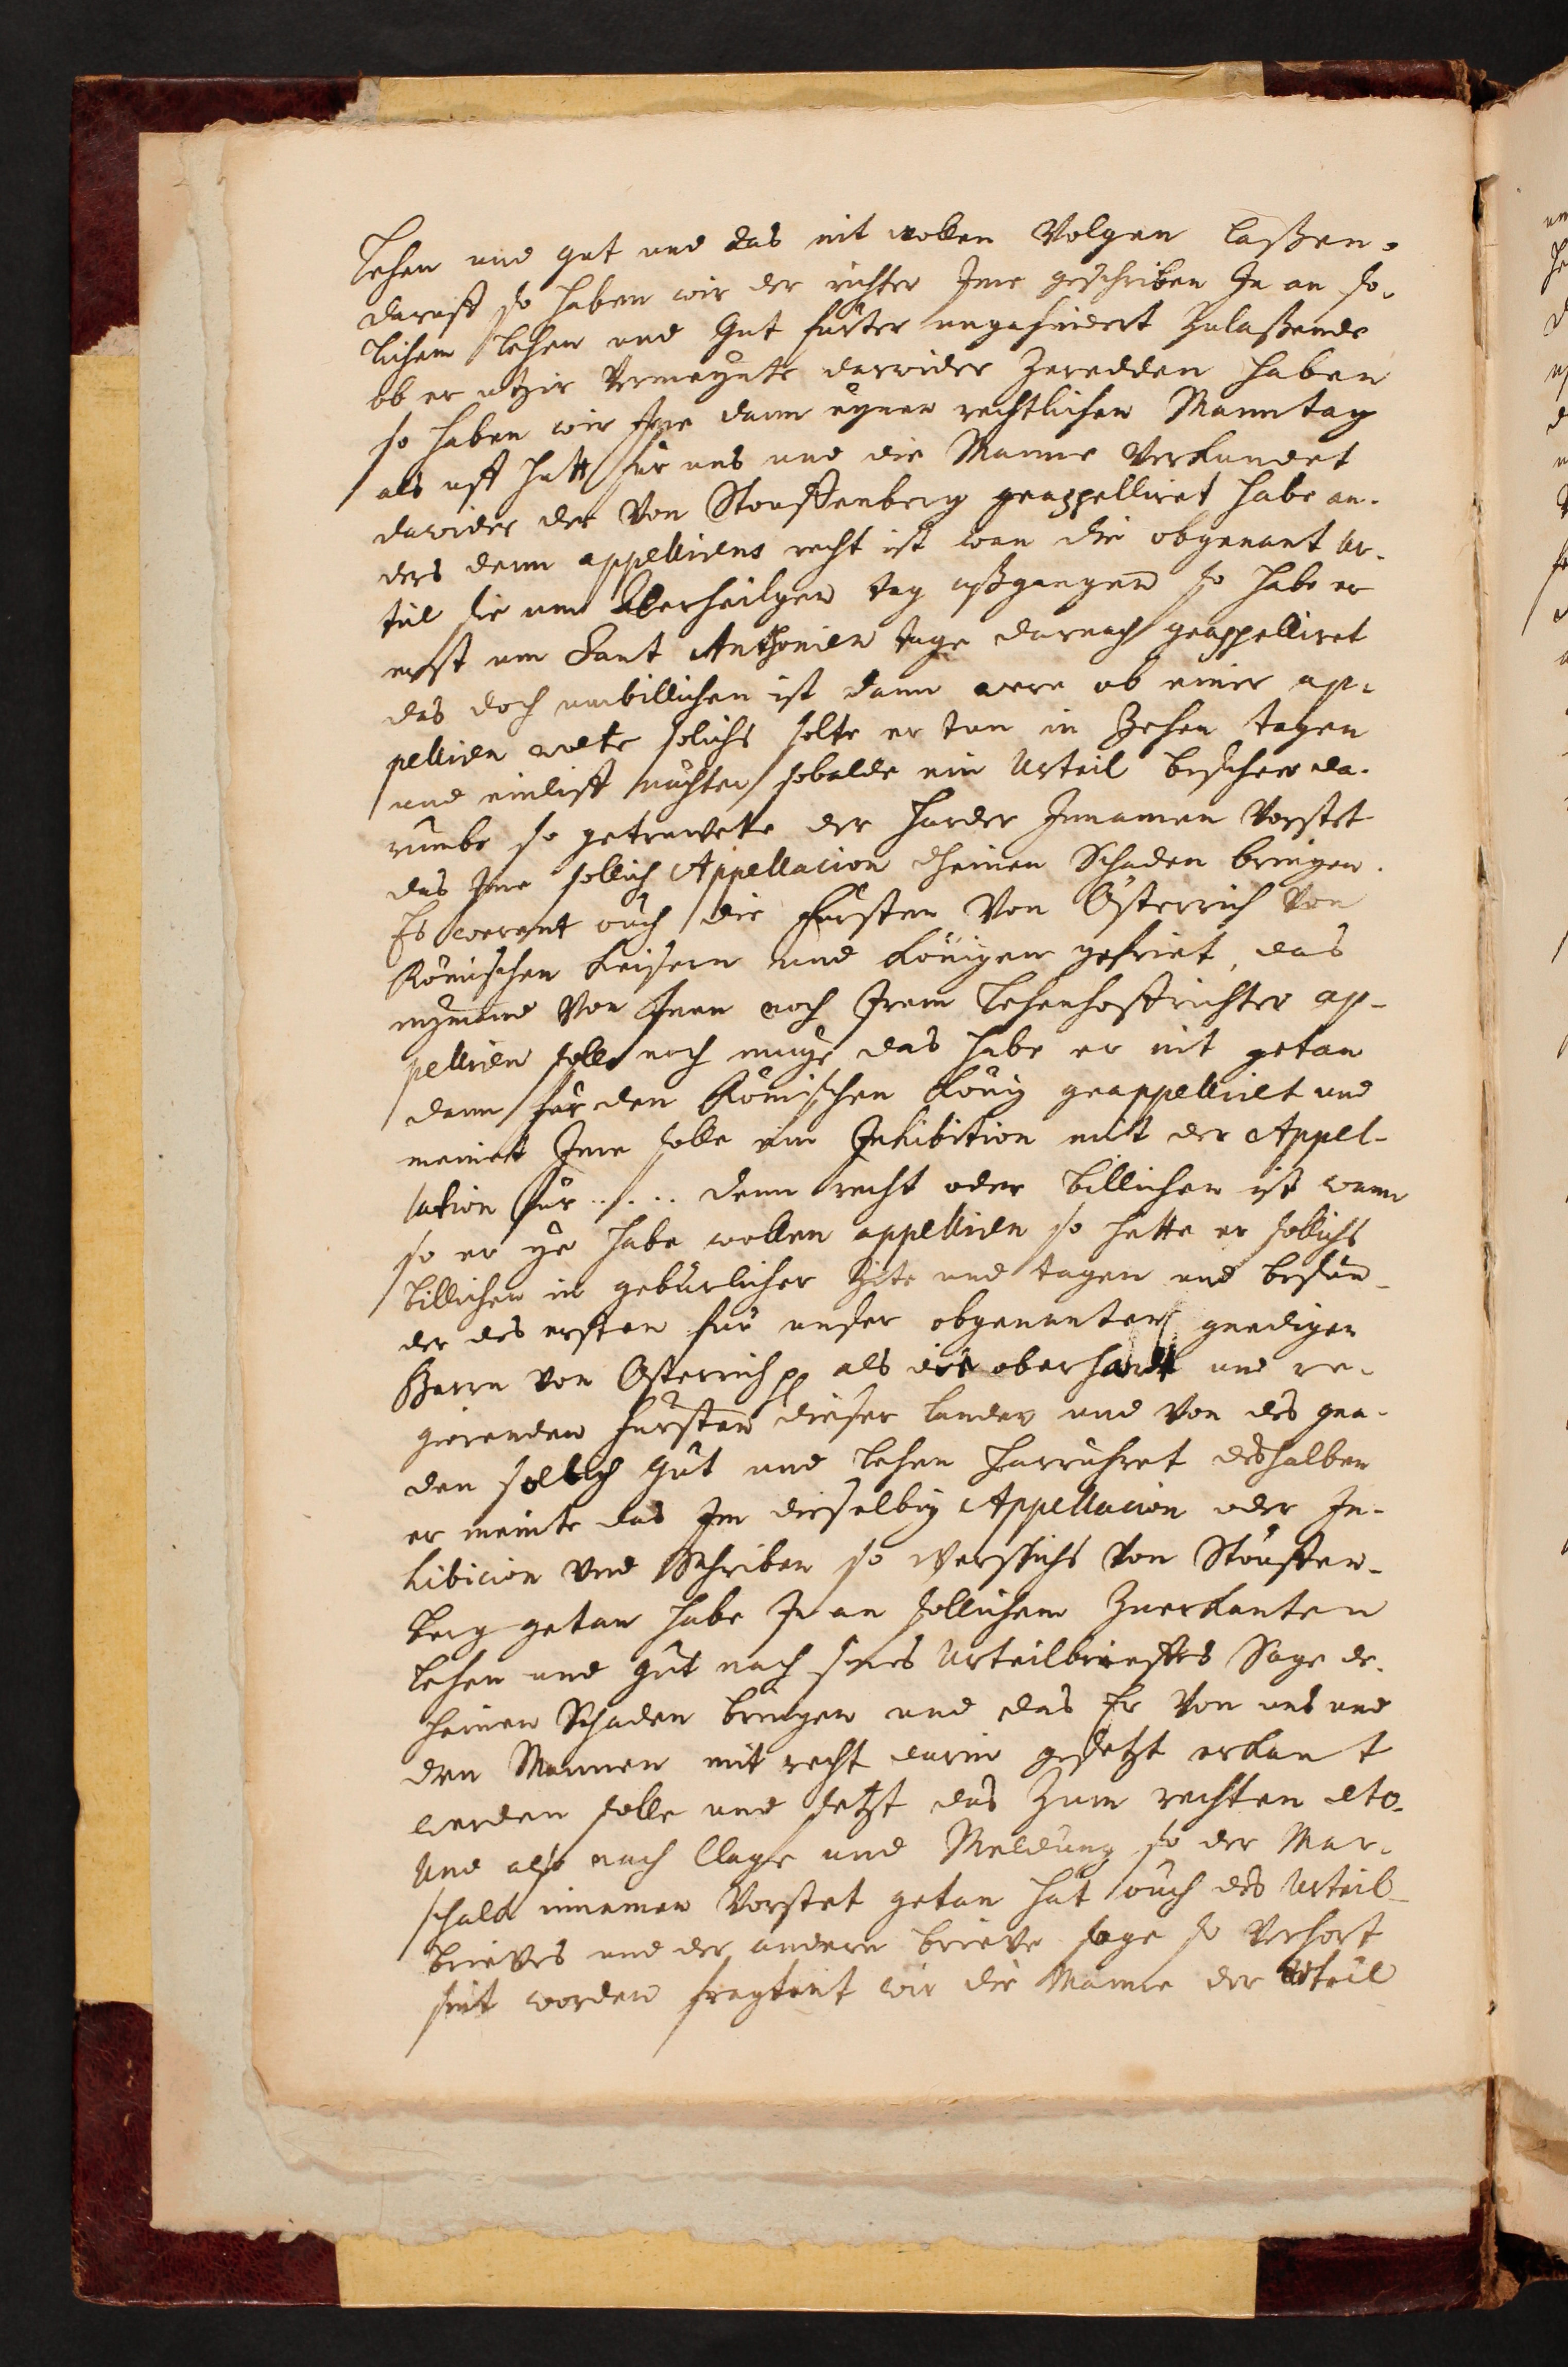 Lehen und gut und das nit wollen Volgen laßen.
daruff so haben wir der richter Ime geschriben In an so-
lichem Lehen und Gut fürter ungehindert Zulaßende
ob er utzir Vermeynte darwider Zeredden haben
so haben wir Ime dann eynen rechtlichen Manntag
als uff hutt für uns und die Manne Verkundet
dawider der Von Stouffenberg geappelliret habe an-
ders denn appellirens recht ist wan die obgenant Ur-
teil sie um Allerheilgen tag ußgangen so habe er
erst um Sant Anthonien tage darnach geappelliret
das doch umbillichen ist dann were ob einer ap-
pelliren wolte solichs solte er tun in Zehen tagen
und einlift nächten sobalde ein Urteil beschee da-
rumbe so getruwete der Harder Innamen Vorstet
das Ime sollich Appellacion dheinen Schaden bringen.
Es werent ouch die Fürsten Von Österrich Von
Römischen Keisern und Königen gefriet, das
nyemand Von Inen noch Irem Lehenhoffrichter ap-
pelliren solle noch muge das habe er nit getan
dann für den Römischen König geappelliret und
meinet Ime solle ein Inhibition mit der Appel-
lation für ..... denn recht oder billichen ist wann
so er ye habe wollen appelliren so hette er sollichs
billichen in gebürlicher Zite und tagen und besun-
der des ersten für unser obgenanten gnedigen
Herrn von Österrich pp als die oberhandt und re-
gierenden Fürsten dieser Landen und von des gna-
den sollich Gut und Lehen Harrühret deshalben
er meinte das Im dieselbig Appellacion oder In-
hibicion und Schriben so Werssichs Von Stouffen-
berg getan habe In an sollichem Zuerkanten
Lehen und Gut nach sines Urteilbrieffes Sage de-
heinen Schaden bringen und das Er Von uns und
den Mannen mit recht darin gesetzt erkant
werden solle und setzt das Zum rechten etc.
Und also nach Clage und Meldung so der Mar-
schalck innamen Vorstet getan hat ouch des Urteil-
brieves und der andern brieve sage so Verhort
sint worden fragtent wir die Manne der Urteil